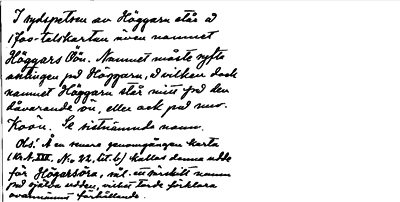 I sydspetsen av Höggarn står å
1700-talskartan även namnet
Höggars Öön. Namnet måste syfta
antingen på Höggarn, å vilken dock
namnet Höggarn står mitt på den
dåvarande ön, eller ock på nuv.
Koön. Se sistnämnda namn.
Obs! Å en senare genomgången karta
(Nr. A. XIII, No 22, lit. b) kallas denna udde
för Högarsöra, väl ett särskilt namn
på själva udden, vilket torde förklara
ovannämnda förhållande.